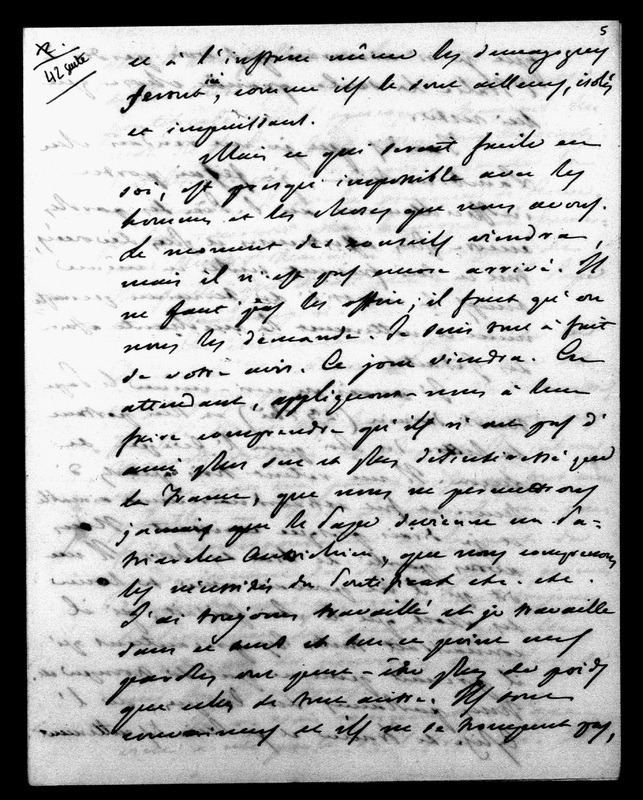 5
42 suite
et à l'instant même les démagogues
seront ici, comme ils le sont ailleurs, isolés
et impuissant.
Mais ce qui serait facile en
soi, est presque impossible avec les
hommes et les choses que nous avons.
Le moment des conseils viendra,
mais il n'est pas encore arrivé. Il
ne faut pas les offrir; il faut qu'on
nous les demande. Je suis tout à fait
de votre avis. Ce jour viendra. En
attendant, appliquons-nous à leur
faire comprendre qu'ils n'ont pas d'
ami plus sur et plus désintéressé que
la France, que nous ne permettrons
jamais que le Pape devienne un Pa-
triarche Autrichien, que nous comprenons
les nécessités du Pontificat etc. etc.
J'ai toujours travaillé et je travaille
dans ce sens et sur ce point mes
paroles ont peut-être plus de poids
que celles de tout autre. Ils sont
convaincus et ils ne se trompent pas,